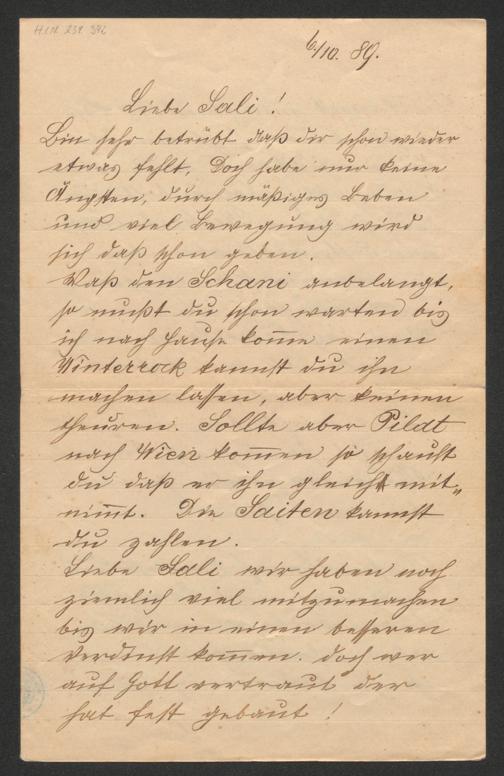 H.I.N. 231 376
6/10. 89.
Liebe Sali!
Bin sehr betrübt daß dir schon wieder
etwas fehlt, Doch habe nur keine
Ängsten, durch mäßiges Leben
und viel Bewegung wird
sich daß schon geben.
Waß den Schani anbelangt,
so mußt du schon warten bis
ich nach Hause kom̅e einen
Winterrock kannst du ihn
machen lassen, aber keinen
theuren. Sollte aber Pildt
nach Wien kom̅en so schaust
du daß er ihn gleich mit„
nim̅t. Die Saiten kannst
du zahlen.
Liebe Sali wir haben noch
ziemlich viel mitzumachen
bis wir in einen besseren
Verdinst kom̅en. doch wer
auf Gott vertraut der
hat fest gebaut!